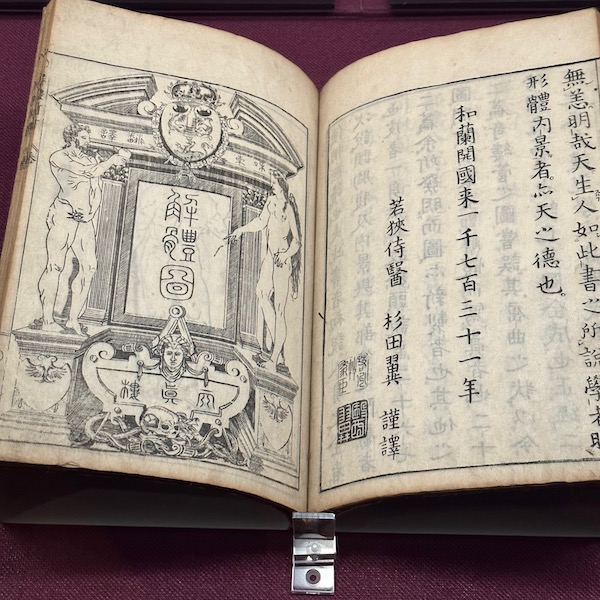 無恙明哉天生人如此書之所説學者明
形體内景者亦天之德也。
和蘭開國来一千七百三十一年
若狹侍醫 杉田翼 謹譯
解體圖
天眞樓